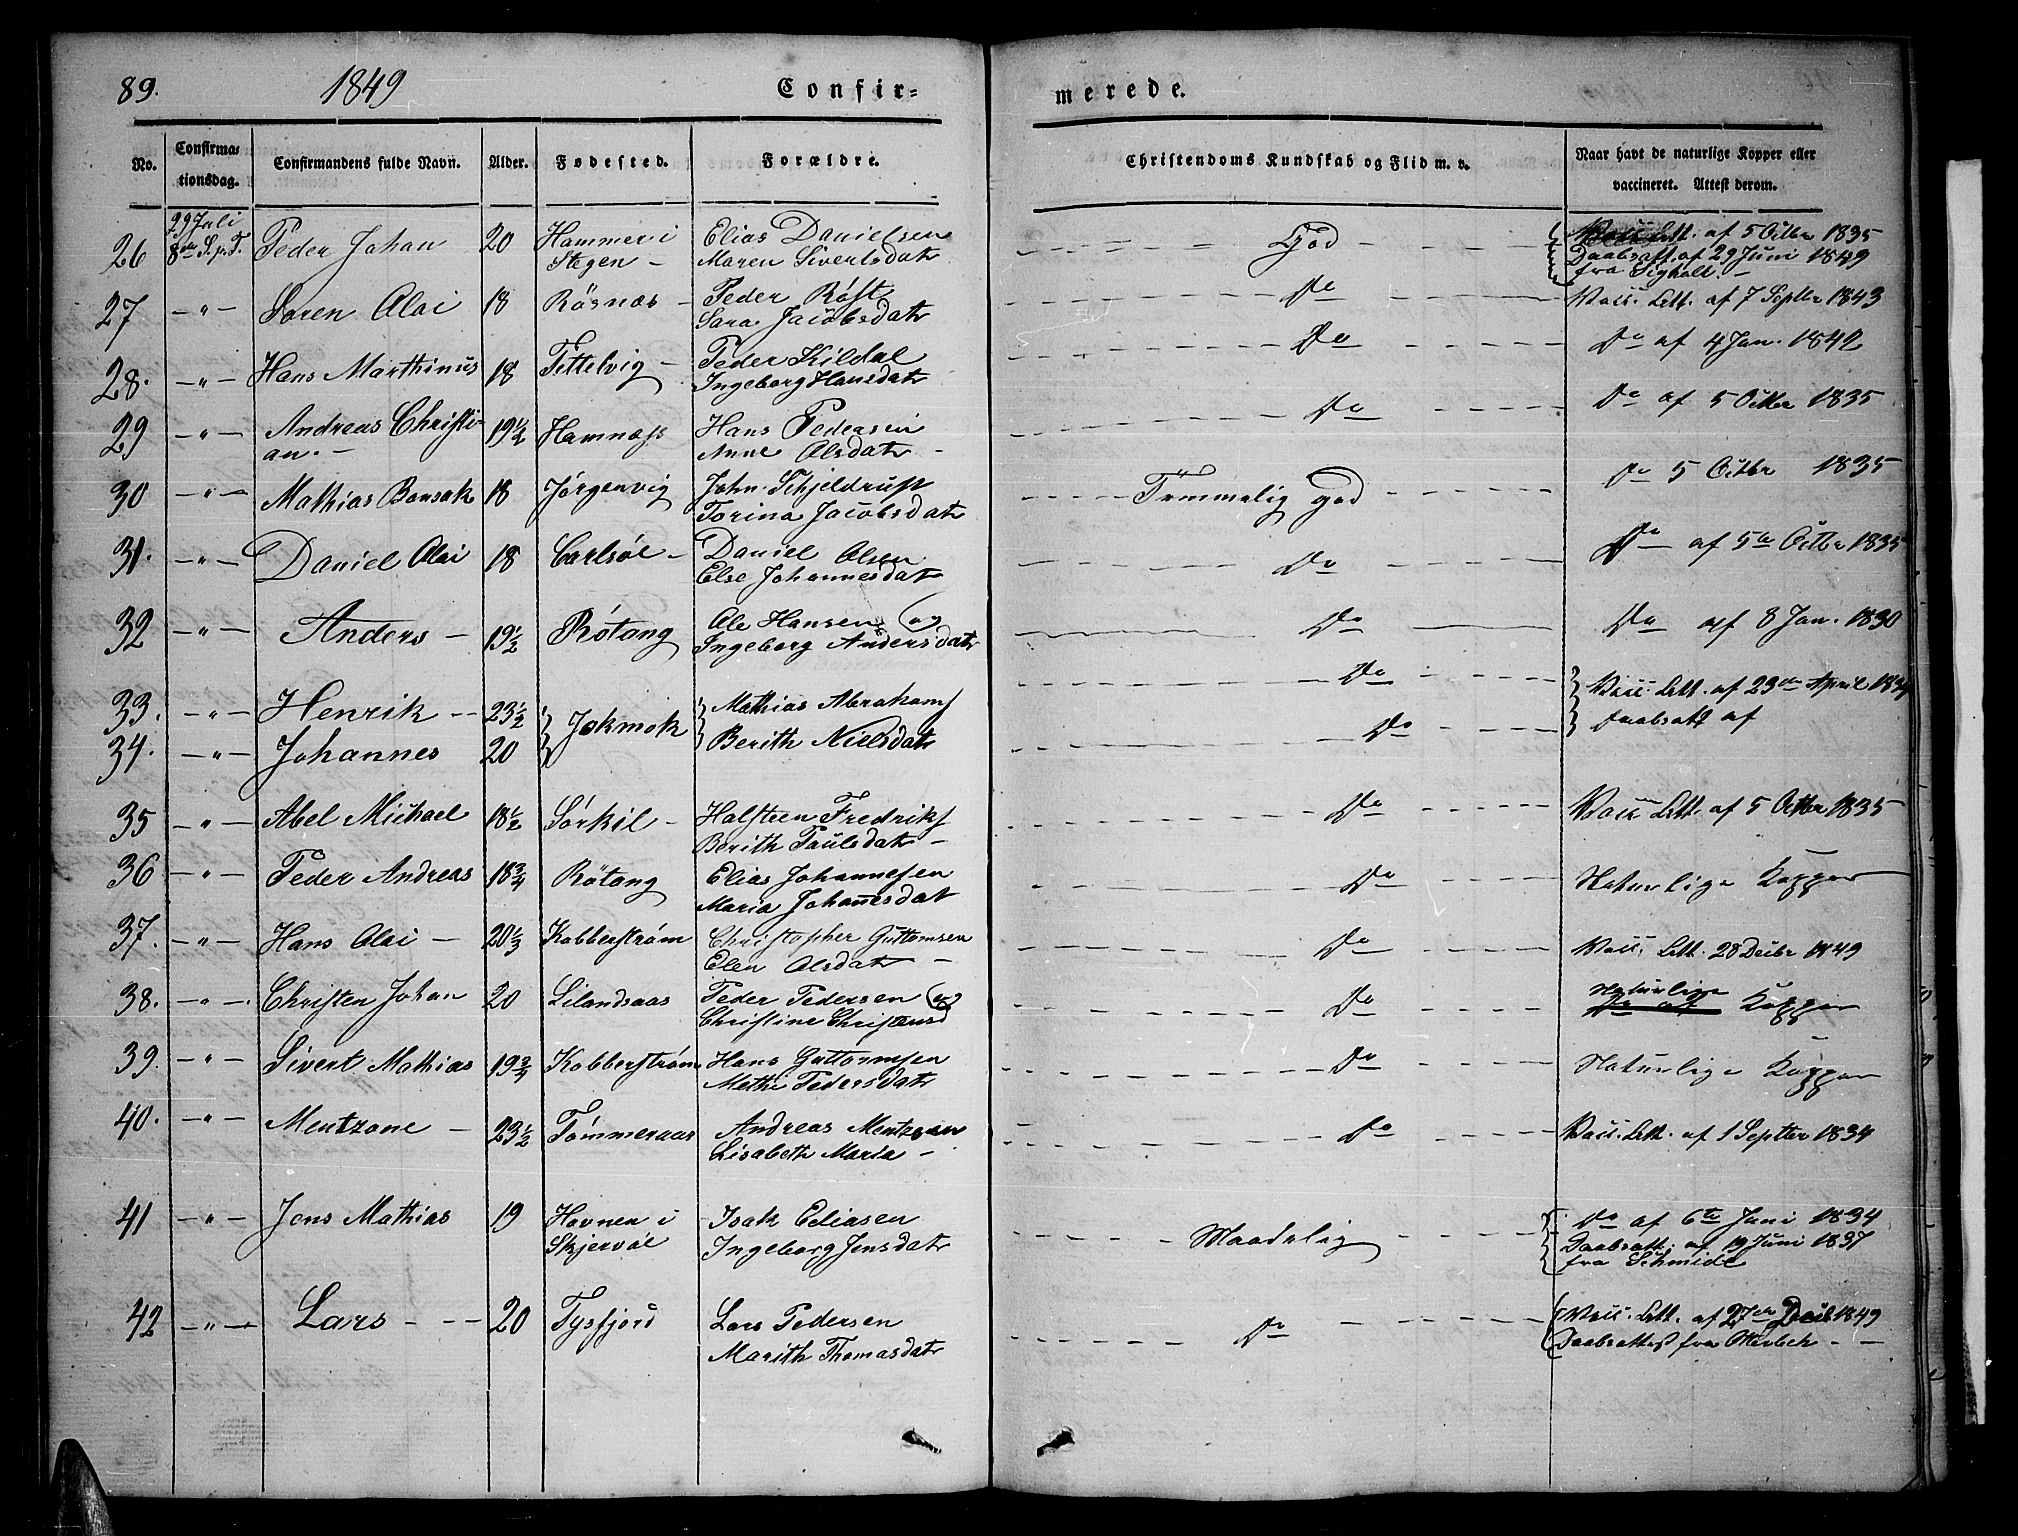 89. 1849 Confir=
merede.
No. Confirma= tionsdag. Confirmandens fulde Navn. Alder. Fodested. Forældre. Christendoms Kundskab og Flid m. v. Naar havt de naturlige Kopper eller vaccineret. Attest derom.
29 Juli
26 8de S. p. T. Peder Johan 20 Hammer i Elias Danielsen God Vacc. Att. af 5 Octbr 1835
Stegen – Maren Sivertsdatr Daabsatt. af 29 Juni 1849
fra
27 –"– Soren Olai 18 Rösnæs – Peder Röst Do Vacc. Att. af 7 Septbr 1843
Sara Jacobsdatr
28. –"– Hans Marthinus 18 Tettelvig – Peder Kildal Do Do af 4 Jan. 1842
Ingeborg Hansdatr
29 –"– Andreas Christi= 19½ Hamnæss Hans Pedersen Do Do af 5 Octbr 1835
an. – Anne Olsdatr –
30 –"– Mathias Bonsak 18 Jørgenvig John Schjeldrup Temmelig god Do 5 Octbr 1835
Torina Jacobsdatr
31. –"– Daniel Olai 18 Carlsöe – Daniel Olsen Do Do af 5te Octbr 1835
Else Johannesdatr
32 –"– Anders – 19½ Rötang Ole Hansen og Do Do af 8 Jan. 1830
Ingeborg Andersdatr
33. –"– Henrik – 23½ Jokmok Mathias Abrahams Do Vacc. Att. af 23de April 1834
34. –"– Johannes 20 Berith Nielsdatr Do Daabsatt af
35 –"– Abel Michael 18½ Sørkil – Halsteen Fredriks Do Vacc. Att. af 5 Octbr 1835
Berith Paulsdatr –
36 –"– Peder Andreas 18¾ Rötang Elias Johannesen Do Naturlige Kopper
Maria Johannesdat
37. –"– Hans Olai – 20⅓ Kobberstrøm Christopher Guttomsen Do Vacc. Att. 28 Decbr 1849
Elen Olsdatr –
38. –"– Christen Johan 20 Lilandsaas Peder Pedersen og Do Naturlige
Christine Christensd Do af Kopper
39. –"– Sivert Mathias 19¾ Kobberstrøm Hans Guttormsen Do Naturlige Kopper
Methe Pedersdatr
40. –"– Mentzone – 23½ Tömmeraas Andreas Mentzsen Do Vacc. Att. af 1 Septbr 1834
Lisabeth Maria –
41 –"– Jens Mathias 19 Havnen i Isak Eliasen Maadelig Do af 6te Juni 1834
Skjervöe Ingeborg Jensdatr Daabsatt. af 19 Juni 1837
fra Schmidt
42 –"– Lars – 20 Tysfjord Lars Pedersen Do Vacc. Att. af 27de Decb 1849
Marith Thomasdatr Daabsattest fra